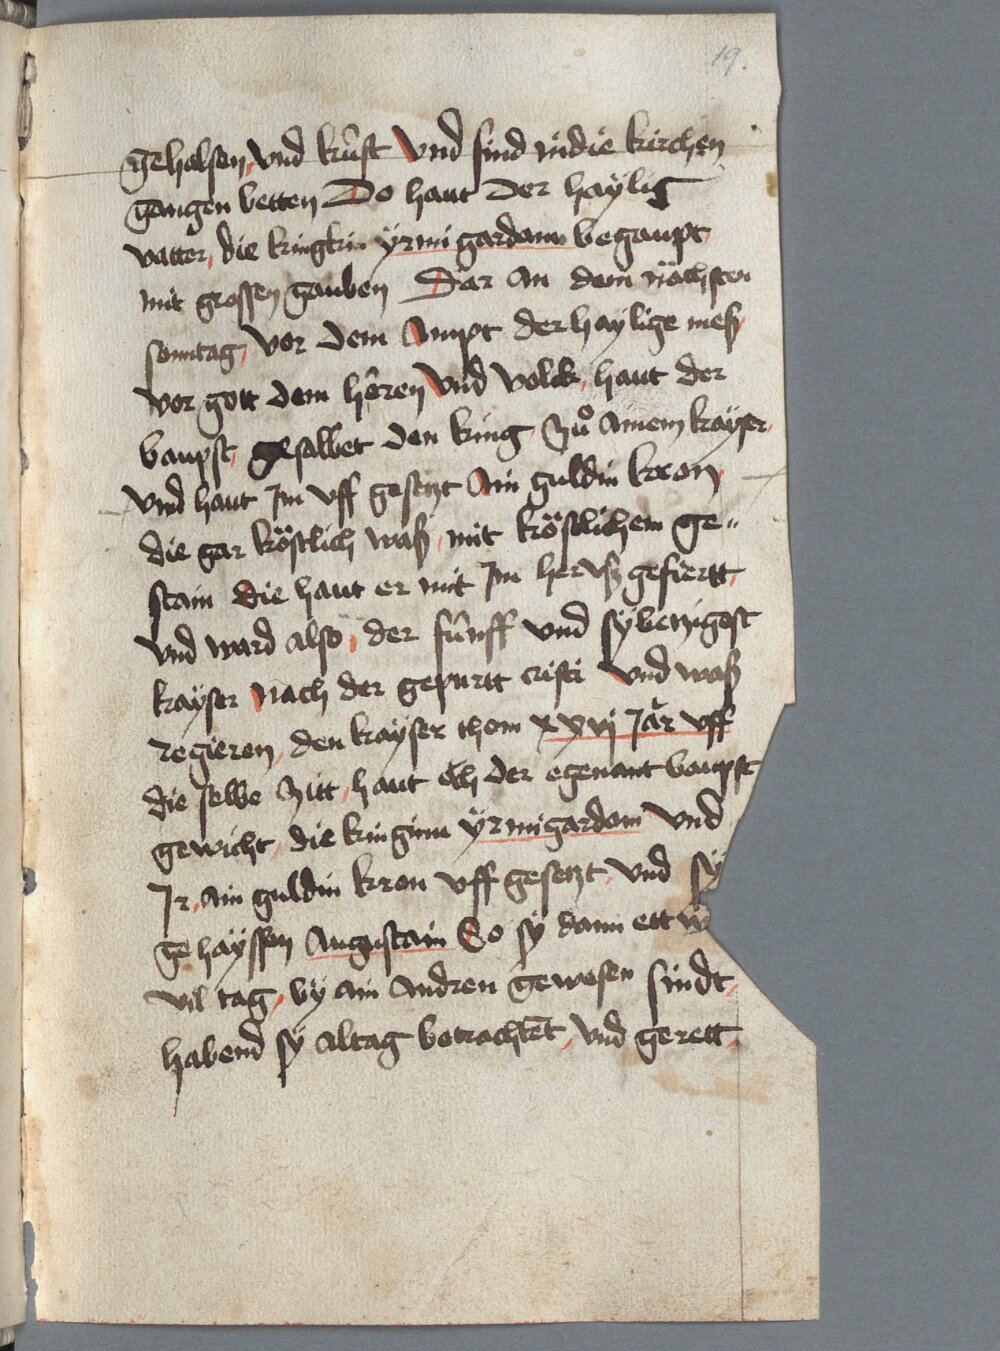 19.
gehalsen, vnd kůst Vnd sind in die kirchen
gangen betten Do haut der haÿlig
vatter, die kingkin ÿrmigardam begaupt
mit grossen gauben Dar an dem nächsten
sonntag, vor dem Ampt der haylige meß,
vor gott dem hêren Vnd volck, haut der
baupst, gesalbet den king, Zů ainem kaÿser,
vnd haut Im vff gesetzt Ain guldin kron,
die gar köstlich waß, mit köstlichem ge„
stain die haut er mit Im heruß gefiertt,
vnd ward also, der fûnff vnd sÿbetzigost
kaÿser Nach der gepurtt cristi Vnd waß
regieren, den kaÿser thom xxvj Jăr vff
die selbe Zitt, haut och der egenant baupst
gewicht, die kinginn ÿrmigardam Vnd
Ir, ain guldin kron vff gesetzt, vnd sÿ
gehaÿssen Augustam So sÿ dann ettw
vil tag, bÿ ain Andren gewesen sindt,
habend sÿ altag betrachtet, vnd gerett,